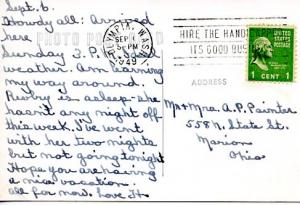 Sept. 6.
Howdy all: Arrived
here
Sunday 3 P.M. Sad
weather. Am learning
my way around.
Ruby is asleep - she
hasn't any night off
this week. I've went
with her two nights
but not going tonight
Hope you are having
a nice vacation.
all for now. Love
PHOTO POST CARD
OLYMPIA, WASH.
SEP
5 PM
1949
HIRE THE HANDICAPPED
ITS GOOD BUSINESS
ADDRESS
1 CENT 1
Mr + Mrs. A. P. Painter
558 N. State St.
Marion
Ohio